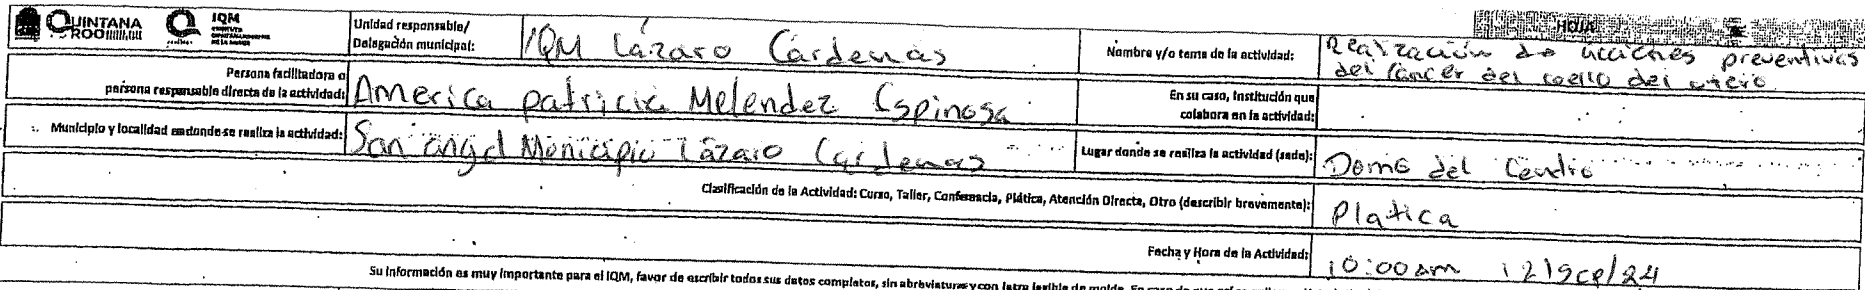 QUINTANA ROO
IQM
Unidad responsable/
Delegación municipal:
IQM Lázaro Cárdenas
HOJA
Nombre y/o tema de la actividad:
Realización de acciones preventivas
del Cáncer del cuello del utero
Persona facilitadora o
persona responsable directa de la actividad:
America patricia Melendez Espinosa
En su caso, institución que
colabora en la actividad:
Municipio y localidad en donde se realiza la actividad:
San angel Municipio Lázaro Cardenas
Lugar donde se realiza la actividad (sede):
Domo del Centro
Clasificación de la Actividad: Curso, Taller, Conferencia, Plática, Atención Directa, Otro (describir brevemente):
Platica
Fecha y Hora de la Actividad:
10:00am 12/sep/24
Su información es muy importante para el IQM, favor de escribir todos sus datos completos, sin abreviaturas y con letra legible de molde.